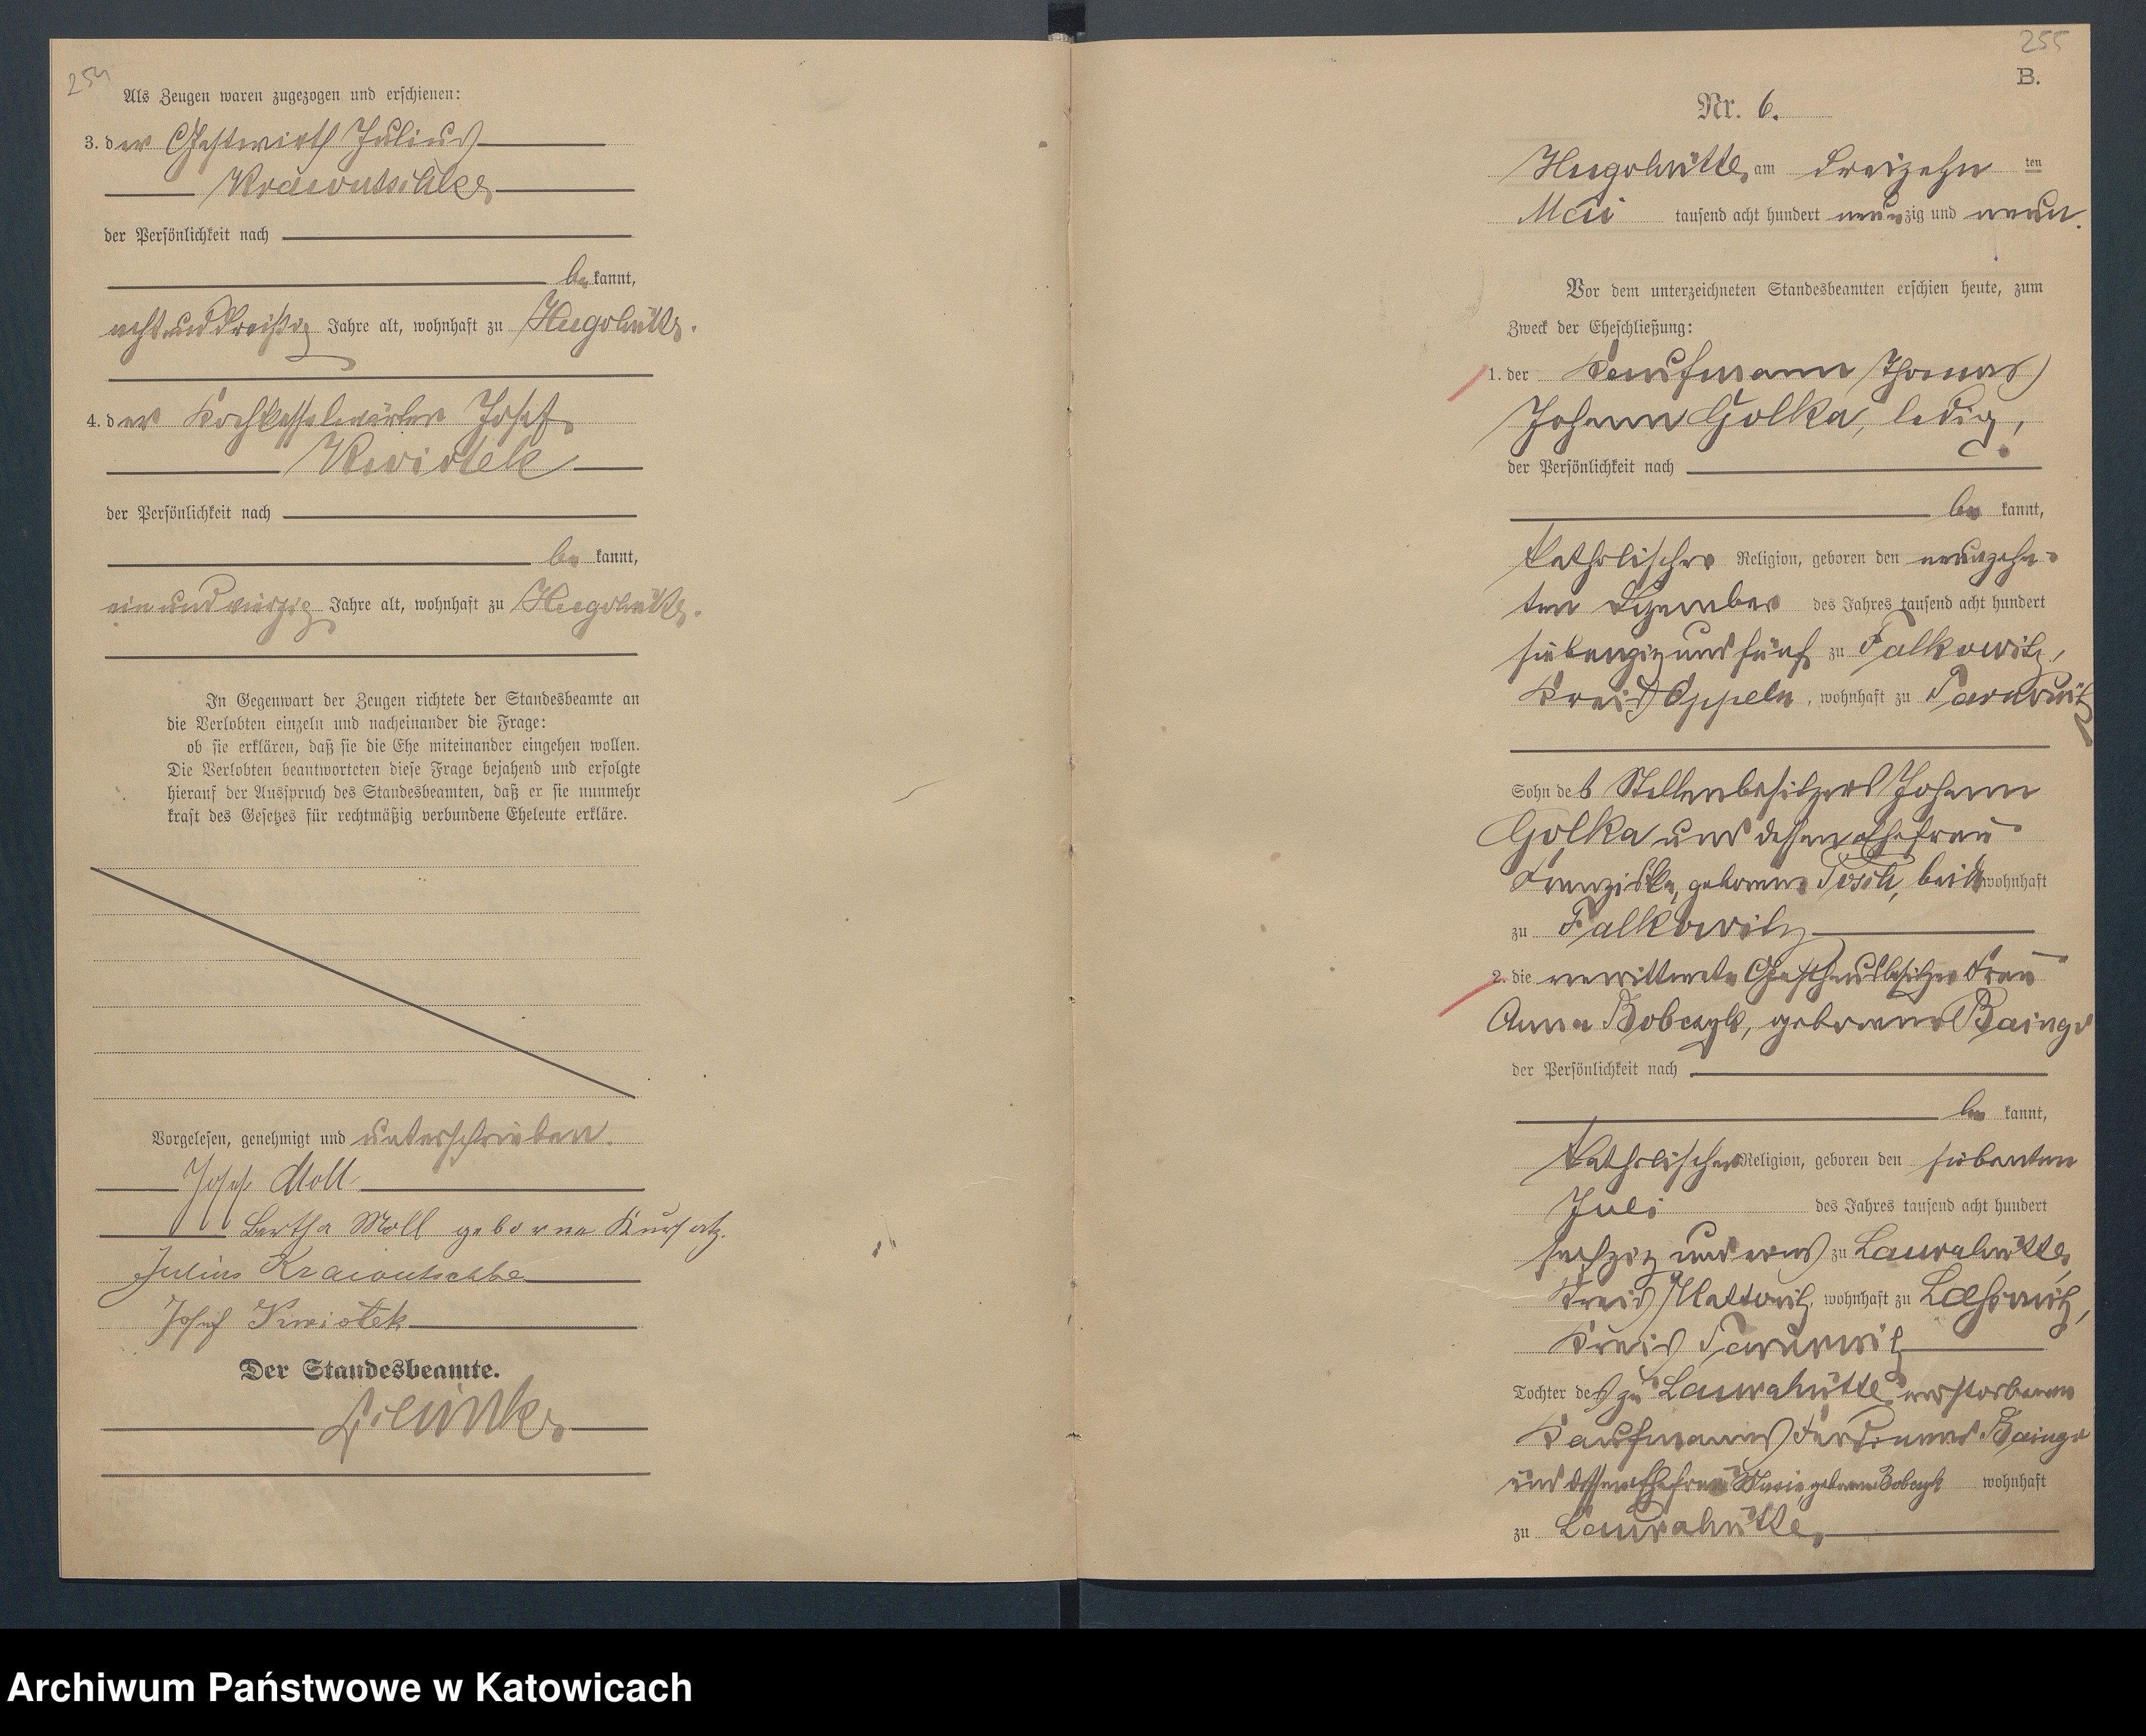 254
Als Zeugen waren zugezogen und erschienen:
3. der Gastwirth Julius
Kraioutschke
der Persönlichkeit nach
be kannt,
acht und dreißig Jahre alt, wohnhaft zu Hugohütte.
4. der Kochkesselwärter Josef
Kwiotek
der Persönlichkeit nach
be kannt,
ein und vierzig Jahre alt, wohnhaft zu Hugohütte.
In Gegenwart der Zeugen richtete der Standesbeamte an
die Verlobten einzeln und nacheinander die Frage:
ob sie erklären, daß sie die Ehe miteinander eingehen wollen.
Die Verlobten beantworteten diese Frage bejahend und erfolgte
hierauf der Ausspruch des Standesbeamten, daß er sie nunmehr
kraft des Gesetzes für rechtmäßig verbundene Eheleute erkläre.
Vorgelesen, genehmigt und unterschrieben.
Josef Moll
Bertha Moll geborne Kursatz.
Julius Kraioutschke
Josef Kwiotek
Der Standesbeamte.
255
B.
Nr. 6.
Hugohütte, am dreizehn ten
Mai tausend acht hundert neunzig und neun.
Vor dem unterzeichneten Standesbeamten erschien heute, zum
Zweck der Eheschließung:
1. der Kaufmann Thomas
Johann Golka, ledig,
der Persönlichkeit nach
be kannt,
katholischer Religion, geboren den neunzehn-
ten Dezember des Jahres tausend acht hundert
siebenzig und fünf zu Falkowitz,
Kreis Oppeln, wohnhaft zu Tarnowitz
Sohn des Stellenbesitzers Johann
Golka und dessen Ehefrau
Franziska, geborene Tosch, beide wohnhaft
zu Falkowitz
2. die verwittwete Gasthausbesitzer Frau
Anna Bobczyk, geborene Baingo
der Persönlichkeit nach
be kannt,
katholischer Religion, geboren den siebenten
Juli des Jahres tausend acht hundert
sechzig und eins zu Laurahütte,
Kreis Kattowitz, wohnhaft zu Lassowitz,
Kreis Tarnowitz
Tochter des zu Laurahütte verstorbenen
Kaufmanns Ferdinand Baingo
und dessen Ehefrau Marie geborene Bobczyk wohnhaft
zu Laurahütte,
Archiwum Państwowe w Katowicach